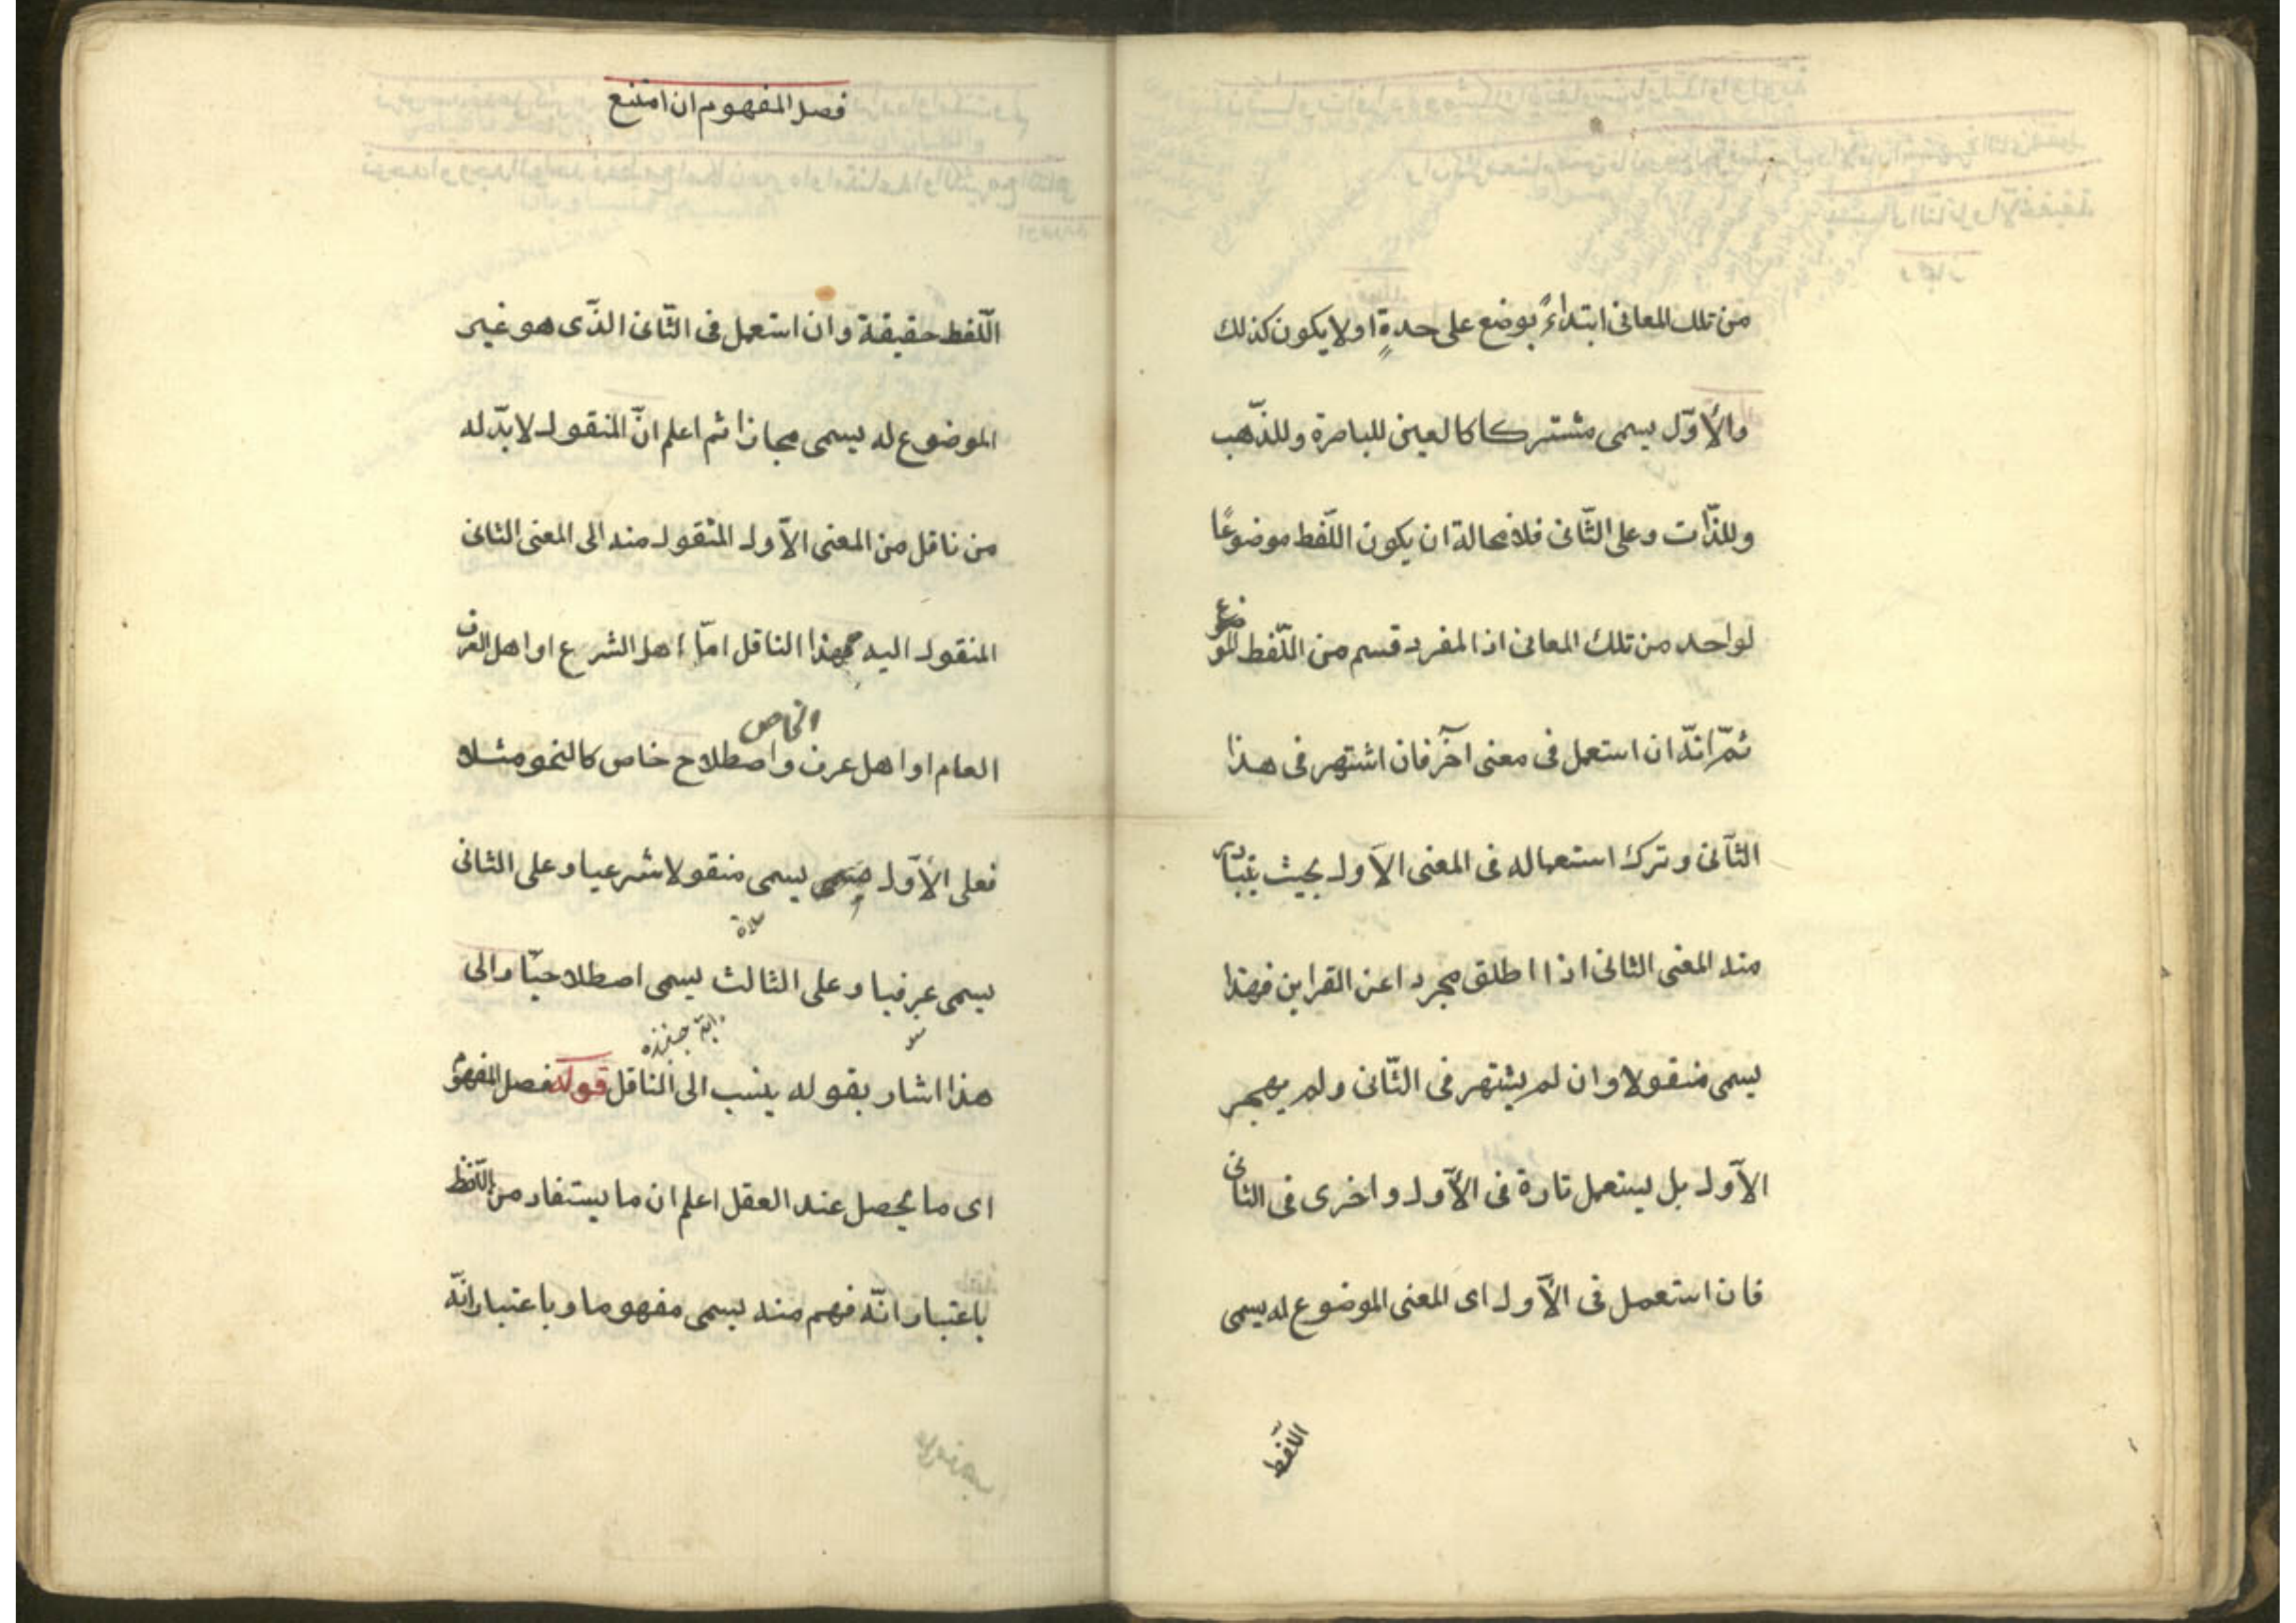 من تلك المعانى ابتداءً بوضع على حدةٍ اولا يكون كذلك
والأوّل يسمى مشتركا كالعين للباصرة وللذّهب
وللذّات وعلى الثّانى فلا محالة ان يكون اللّفظ موضوعًا
لواحد من تلك المعانى اذ المفرد قسم من اللّفظ الموضوع
ثمّ انّه ان استعمل فى معنى آخر فان اشتهر فى هذا
الثّانى وترك استعماله فى المعنى الأول بحيث يتبادر
منه المعنى الثانى اذا اطلق مجردا عن القراين فهذا
يسمى منقولا وان لم يشتهر فى الثّانى ولم يهجر
الأول بل يستعمل تارة فى الأول واخرى فى الثانى
فان استعمل فى الأول اى المعنى الموضوع له يسمى
اللّفظ
فصل المفهوم ان امتنع
اللّفظ حقيقة وان استعمل فى الثّانى الذّى هو غير
الموضوع له يسمى مجازا ثم اعلم انّ المنقول لابدّ له
من ناقل من المعنى الأول المنقول منه الى المعنى الثانى
المنقول اليه فهذا الناقل امّا اهل الشرع او اهل العرف
الخاص
العام او اهل عرف واصطلاح خاص كالنحو مثلا
فعلى الأوّل يسمى منقولا شرعيا وعلى الثانى
صلاة
يسمى عرفيا وعلى الثالث يسمى اصطلاحيّا والى
دابة
هذا اشار بقوله ينسب الى الناقل قوله فصل المفهوم
اى ما يحصل عند العقل اعلم ان ما يستفاد من اللّفظ
باعتبار انّه فهم منه يسمى مفهوما وباعتبار انّه